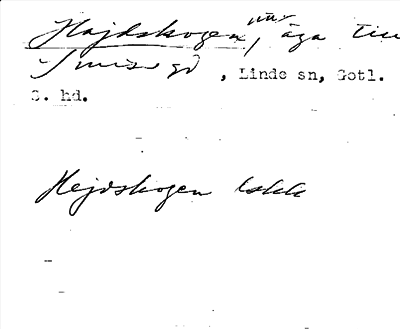 Hajdskogen, äga till
Smiss gd , Linde sn, Gotl.
S. hd.
Hejdskogen